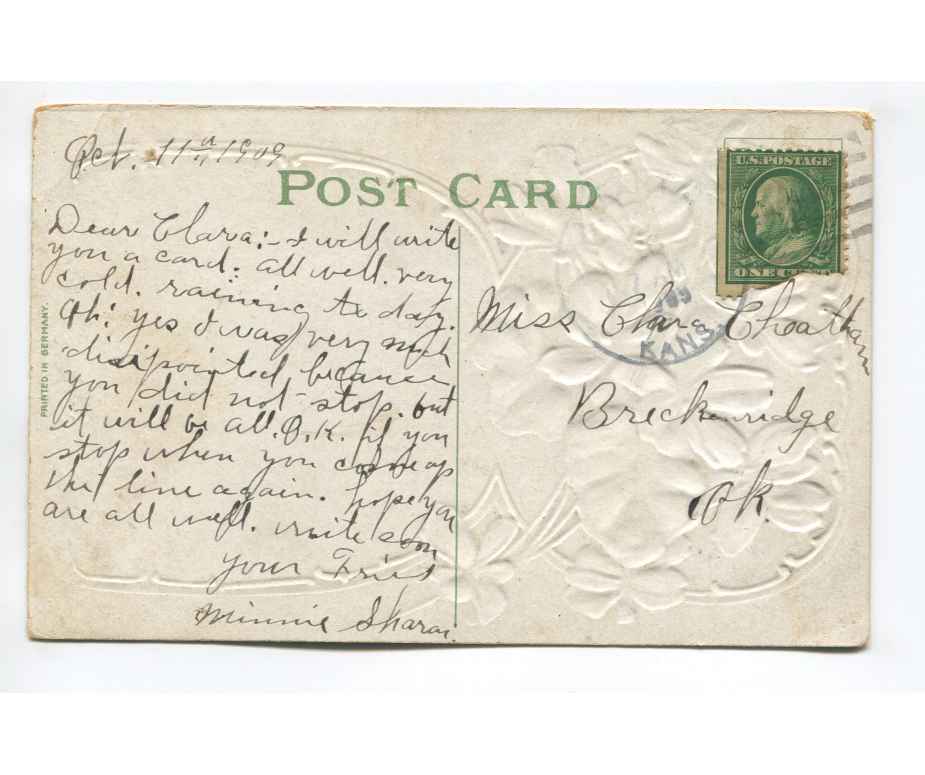 Oct. 11th, 1909
POST CARD
U.S. POSTAGE
ONE CENT
Dear Clara:- I will write
you a card. all well. very
cold. raining to day.
Oh! yes I was very much
disipointed because
you did not stop. but
it will be all. O.K. if you
stop when you come up
the line again. hope you
are all well. write soon
your Fried
Minnie
PRINTED IN GERMANY.
09
KANS
Miss Clara Cheatham
Breckenridge
Ok.